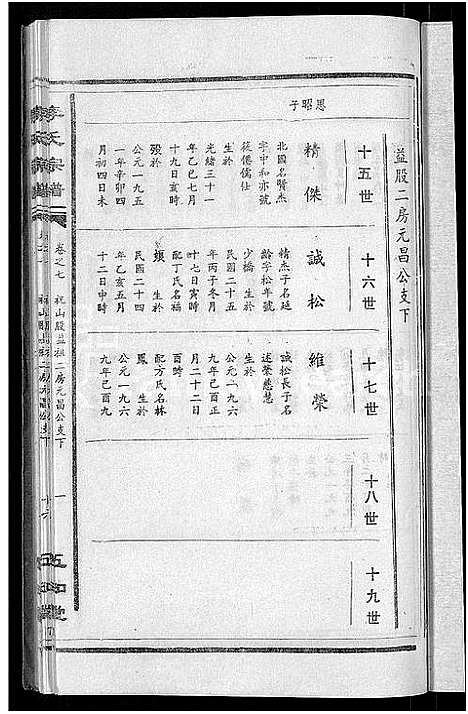 益股二房元昌公支下
十五世
十六世
十七世
十八世
十九世
恩昭子
精傑
北國名賢杰
字中和亦號
筱僊儒仕
生於
光緒三十一
年乙巳七月
十九日亥時
歿於
公元一九五
一年辛卯四
月初四日未
誠松
精杰子名廷
齡字松年號
少橋 生於
民國二十五
年丙子冬月
廿七日寅時
配丁氏名福
娥 生於
民國二十四
年乙亥五月
十二日申時
維榮
誠松長子名
述榮慈慧
生於
公元一九六
九年己酉正
月二十二日
酉時
配方氏名林
鳳 生於
公元一九六
九年己酉九
李氏宗譜
卷之七
祝山股益祖二房元昌公支下
一